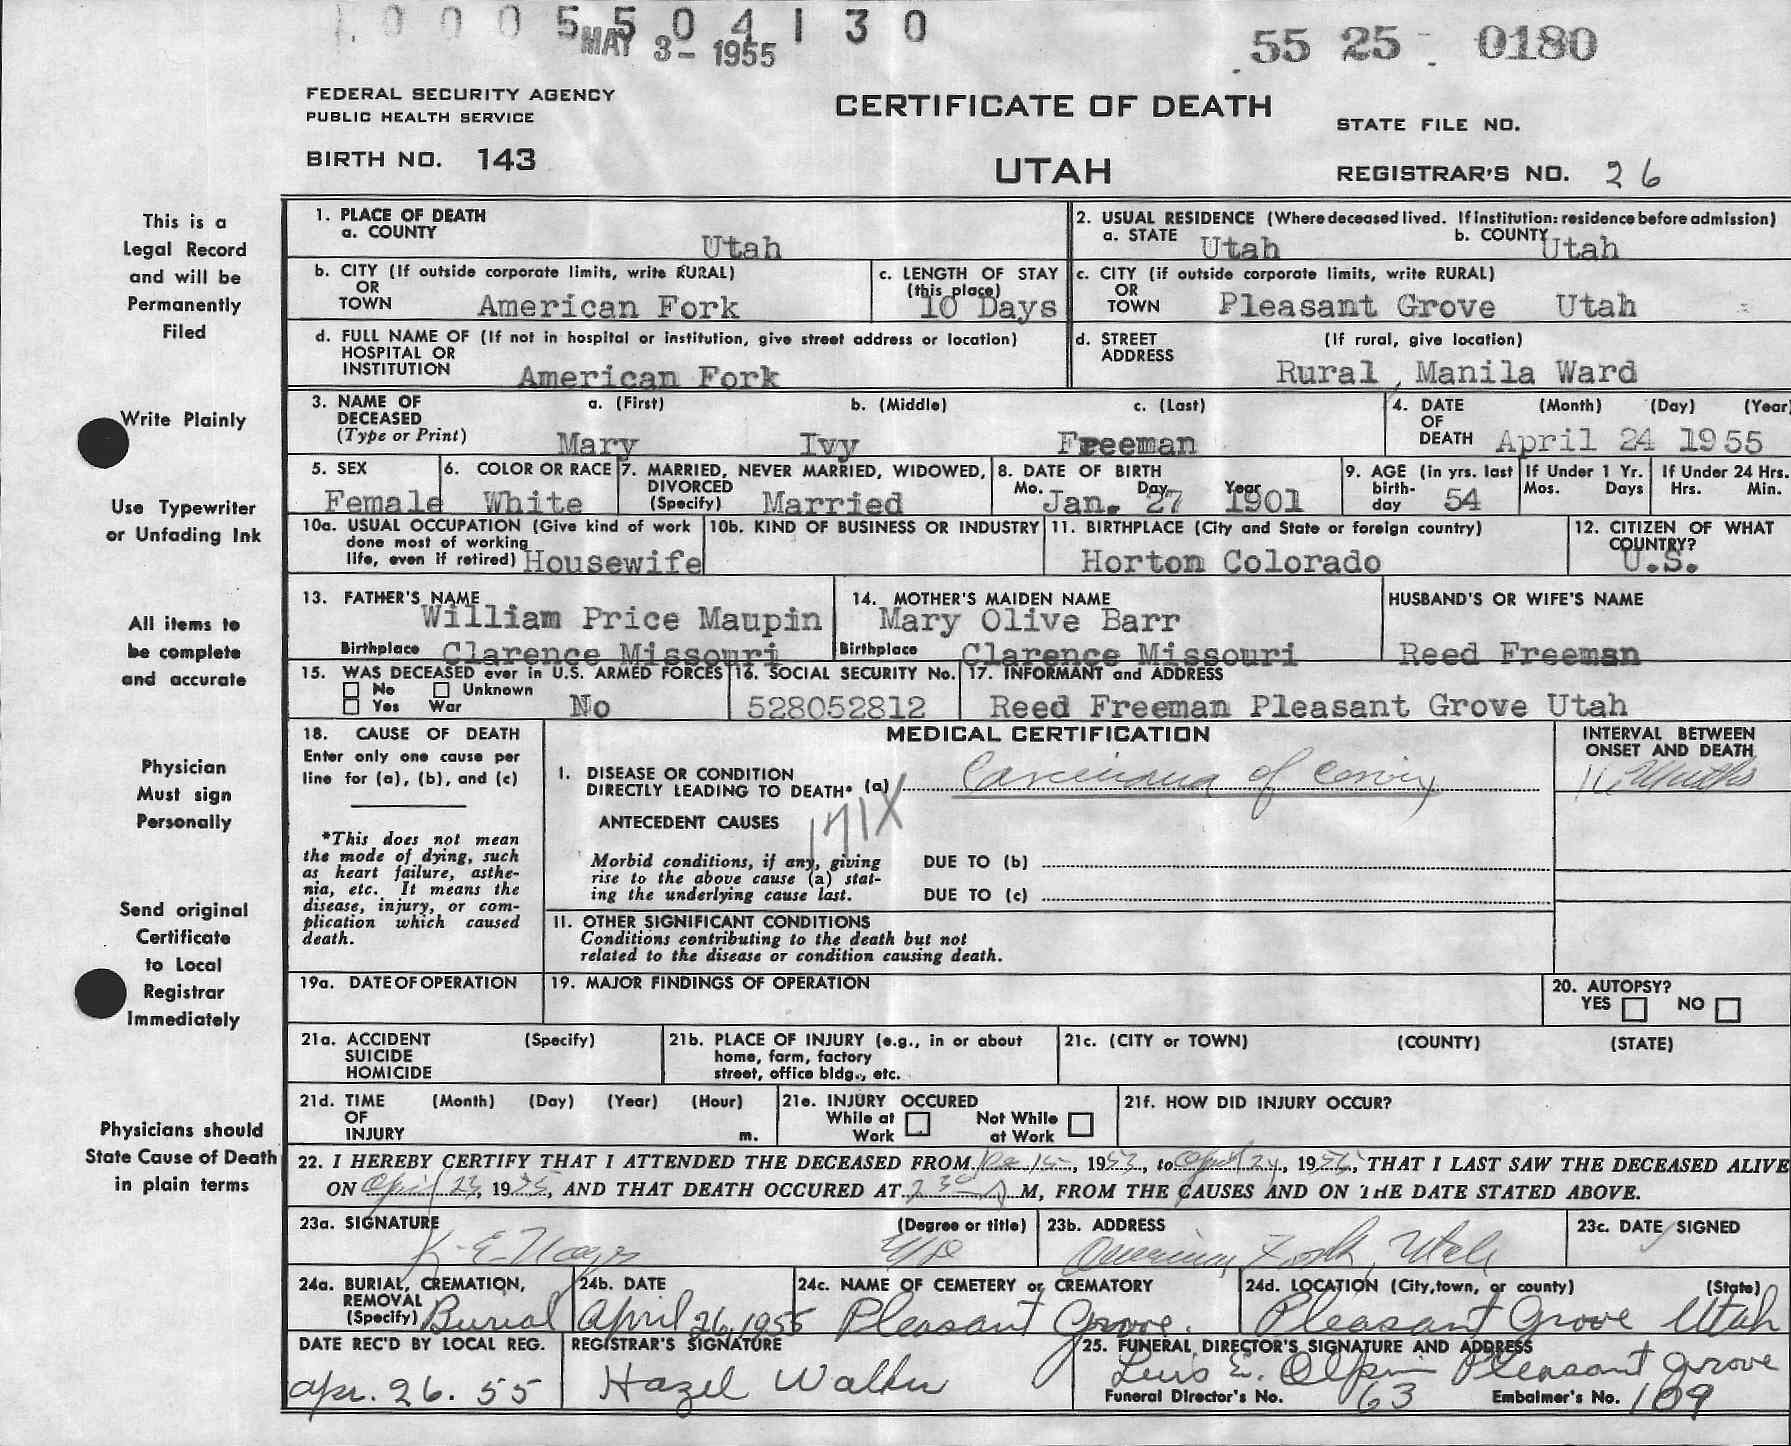 1 0 0 0 5 5 0 4 1 3 0
MAY 3- 1955
55 25 0180
FEDERAL SECURITY AGENCY
PUBLIC HEALTH SERVICE
CERTIFICATE OF DEATH
STATE FILE NO.
BIRTH NO. 143
UTAH
REGISTRAR'S NO. 26
This is a
Legal Record
and will be
Permanently
Filed
Write Plainly
Use Typewriter
or Unfading Ink
All items to
be complete
and accurate
Physician
Must sign
Personally
Send original
Certificate
to Local
Registrar
Immediately
Physicians should
State Cause of Death
in plain terms
1. PLACE OF DEATH
a. COUNTY
Utah
2. USUAL RESIDENCE (Where deceased lived. If institution: residence before admission)
a. STATE Utah b. COUNTY Utah
b. CITY (If outside corporate limits, write RURAL)
OR
TOWN American Fork
c. LENGTH OF STAY
(this place)
10 Days
c. CITY (if outside corporate limits, write RURAL)
OR
TOWN Pleasant Grove Utah
d. FULL NAME OF (If not in hospital or institution, give street address or location)
HOSPITAL OR
INSTITUTION American Fork
d. STREET (If rural, give location)
ADDRESS
Rural , Manila Ward
3. NAME OF a. (First) b. (Middle) c. (Last)
DECEASED
(Type or Print) Mary Ivy Freeman
4. DATE (Month) (Day) (Year)
OF
DEATH April 24 1955
5. SEX
Female
6. COLOR OR RACE
White
7. MARRIED, NEVER MARRIED, WIDOWED,
DIVORCED
(Specify) Married
8. DATE OF BIRTH
Mo. Day Year
Jan. 27 1901
9. AGE (in yrs. last
birth-
day 54
If Under 1 Yr.
Mos. Days
If Under 24 Hrs.
Hrs. Min.
10a. USUAL OCCUPATION (Give kind of work
done most of working
life, even if retired) Housewife
10b. KIND OF BUSINESS OR INDUSTRY
11. BIRTHPLACE (City and State or foreign country)
Horton Colorado
12. CITIZEN OF WHAT
COUNTRY?
U.S.
13. FATHER'S NAME
William Price Maupin
Birthplace Clarence Missouri
14. MOTHER'S MAIDEN NAME
Mary Olive Barr
Birthplace Clarence Missouri
HUSBAND'S OR WIFE'S NAME
Reed Freeman
15. WAS DECEASED ever in U.S. ARMED FORCES
No Unknown
Yes War No
16. SOCIAL SECURITY No.
528052812
17. INFORMANT and ADDRESS
Reed Freeman Pleasant Grove Utah
18. CAUSE OF DEATH
Enter only one cause per
line for (a), (b), and (c)
*This does not mean
the mode of dying, such
as heart failure, asthe-
nia, etc. It means the
disease, injury, or com-
plication which caused
death.
MEDICAL CERTIFICATION
I. DISEASE OR CONDITION
DIRECTLY LEADING TO DEATH* (a) Carcinoma of Cervix
171X
ANTECEDENT CAUSES
Morbid conditions, if any, giving
rise to the above cause (a) stat-
ing the underlying cause last.
DUE TO (b)
DUE TO (c)
II. OTHER SIGNIFICANT CONDITIONS
Conditions contributing to the death but not
related to the disease or condition causing death.
INTERVAL BETWEEN
ONSET AND DEATH
Months
19a. DATE OF OPERATION
19. MAJOR FINDINGS OF OPERATION
20. AUTOPSY?
YES NO
21a. ACCIDENT (Specify)
SUICIDE
HOMICIDE
21b. PLACE OF INJURY (e.g., in or about
home, farm, factory
street, office bldg., etc.
21c. (CITY or TOWN) (COUNTY) (STATE)
21d. TIME (Month) (Day) (Year) (Hour)
OF
INJURY m.
21e. INJURY OCCURED
While at Work Not While at Work
21f. HOW DID INJURY OCCUR?
22. I HEREBY CERTIFY THAT I ATTENDED THE DECEASED FROM 1953, to April 24, 1955, THAT I LAST SAW THE DECEASED ALIVE
ON April 23, 1955, AND THAT DEATH OCCURED AT M, FROM THE CAUSES AND ON THE DATE STATED ABOVE.
23a. SIGNATURE (Degree or title)
K. E. MD
23b. ADDRESS
American Fork, Utah
23c. DATE SIGNED
24a. BURIAL, CREMATION,
REMOVAL
(Specify) Burial
24b. DATE
April 26, 1955
24c. NAME OF CEMETERY or CREMATORY
Pleasant Grove.
24d. LOCATION (City, town, or county) (State)
Pleasant Grove Utah
DATE REC'D BY LOCAL REG.
Apr. 26. 55
REGISTRAR'S SIGNATURE
Hazel Walker
25. FUNERAL DIRECTOR'S SIGNATURE AND ADDRESS
E. Olpin Pleasant Grove
Funeral Director's No. 63 Embalmer's No. 109